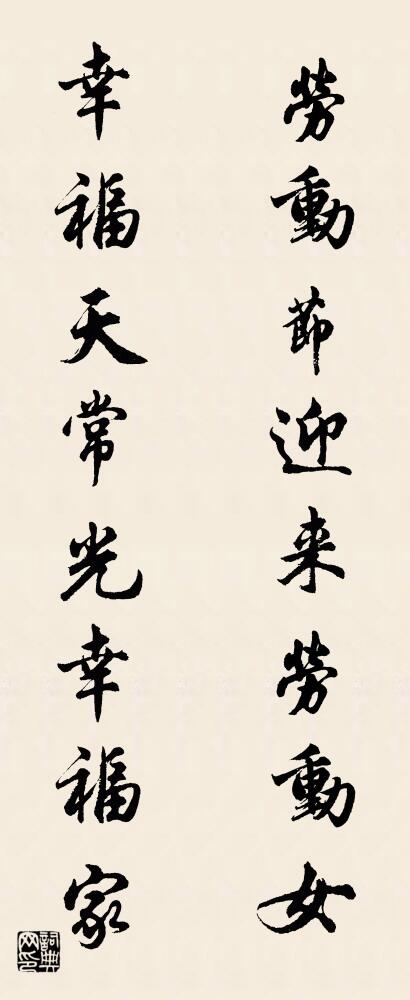 勞動節迎来勞動女
幸福天常光幸福家
詞典
网印